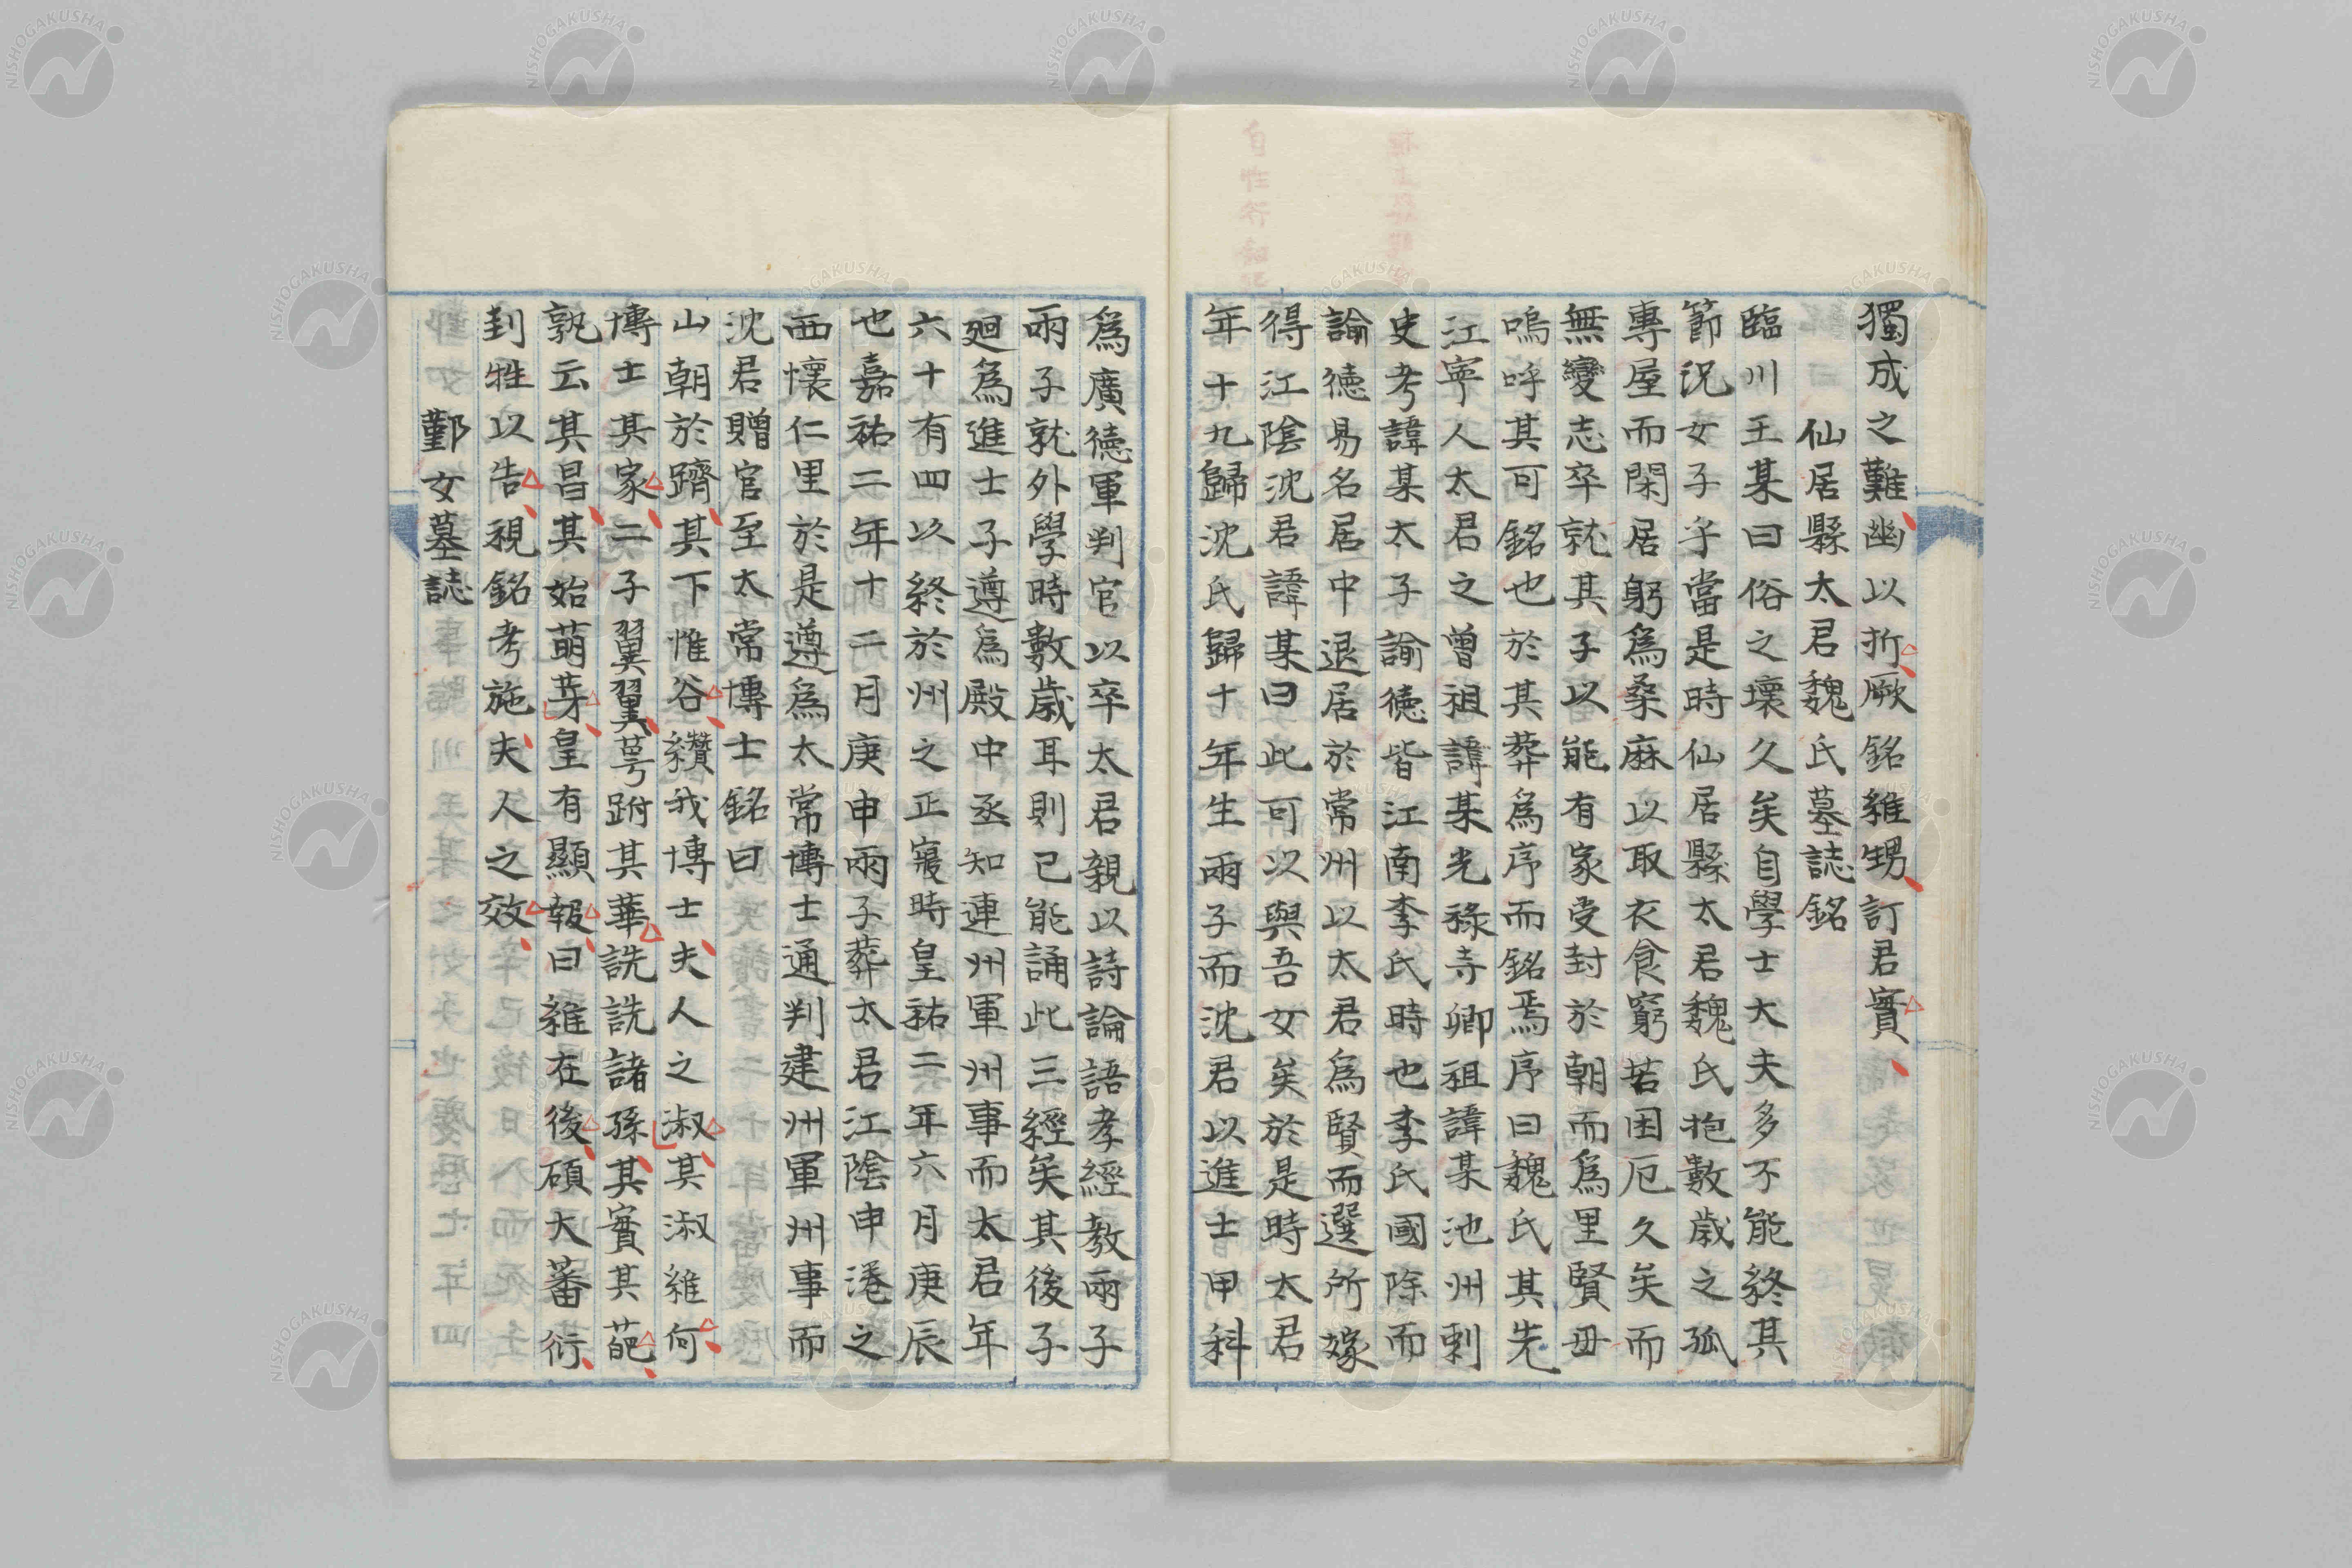 獨成之難幽以折厥銘維甥訂君實
仙居縣太君魏氏墓誌銘
臨川王某曰俗之壞久矣自學士大夫多不能終其
節況女子乎當是時仙居縣太君魏氏抱數歲之孤
專屋而閑居躬為桑麻以取衣食窮苦困厄久矣而
無變志卒就其子以能有家受封於朝而為里賢母
嗚呼其可銘也於其葬為序而銘焉序曰魏氏其先
江寧人太君之曾祖諱某光祿寺卿祖諱某池州刺
史考諱某太子諭德皆江南李氏時也李氏國除而
論德易名居中退居於常州以太君為賢而選所嫁
得江陰沈君諱某曰此可以與吾女矣於是時太君
年十九歸沈氏歸十年生兩子而沈君以進士甲科
為廣德軍判官以卒太君親以詩論語孝經教兩子
兩子就外學時數歲耳則已能誦此三經矣其後子
迴為進士子遵為殿中丞知連州軍州事而太君年
六十有四以終於州之正寢時皇祐二年六月庚辰
也嘉祐二年十二月庚申兩子葬太君江陰申港之
西懷仁里於是遵為太常博士通判建州軍州事而
沈君贈官至太常博士銘曰
山朝於躋其下惟谷纘我博士夫人之淑其淑維何
博士其家二子翼翼萼跗其華詵詵諸孫其實其葩
孰云其昌其始萌芽皇有顯報曰維在後碩大蕃衍
刲牲以告視銘考施夫人之效
鄞女墓誌
NISHOGAKUSHA